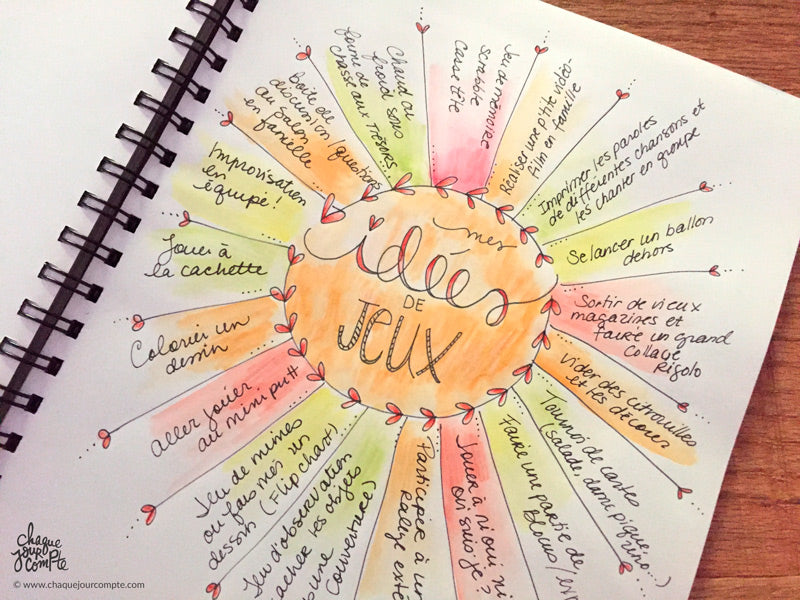 mes
idées
DE
JEUX
Jeu de mémoire
scrabble
casse tête
Réaliser une p'tite vidéo-
film en famille
Imprimer les paroles
de différentes chansons et
les chanter en groupe
Se lancer un ballon
dehors
Sortir de vieux
magazines et
faire un grand
collage
Rigolo
Vider des citrouilles
et les décorer
Tournoi de cartes
(salade, dame pique,
uno...)
Faire une partie de
Blocus/
Jouer à ni oui, ni
Qui suis-je?
Participer à un
Rallye exté
Jeu d'observation
cacher les objets
sous une
couverture)
Jeu de mimes
ou fais-moi un
dessin (Flip chart)
Aller jouer
au mini putt
Colorier un
dessin
Jouer à
la cachette
Improvisation
en
équipe!
Boîte de
discussion/questions
au salon
en famille
Chaud ou
froid sous
forme de
chasse aux trésors
chaque
jour
compte
© www.chaquejourcompte.com